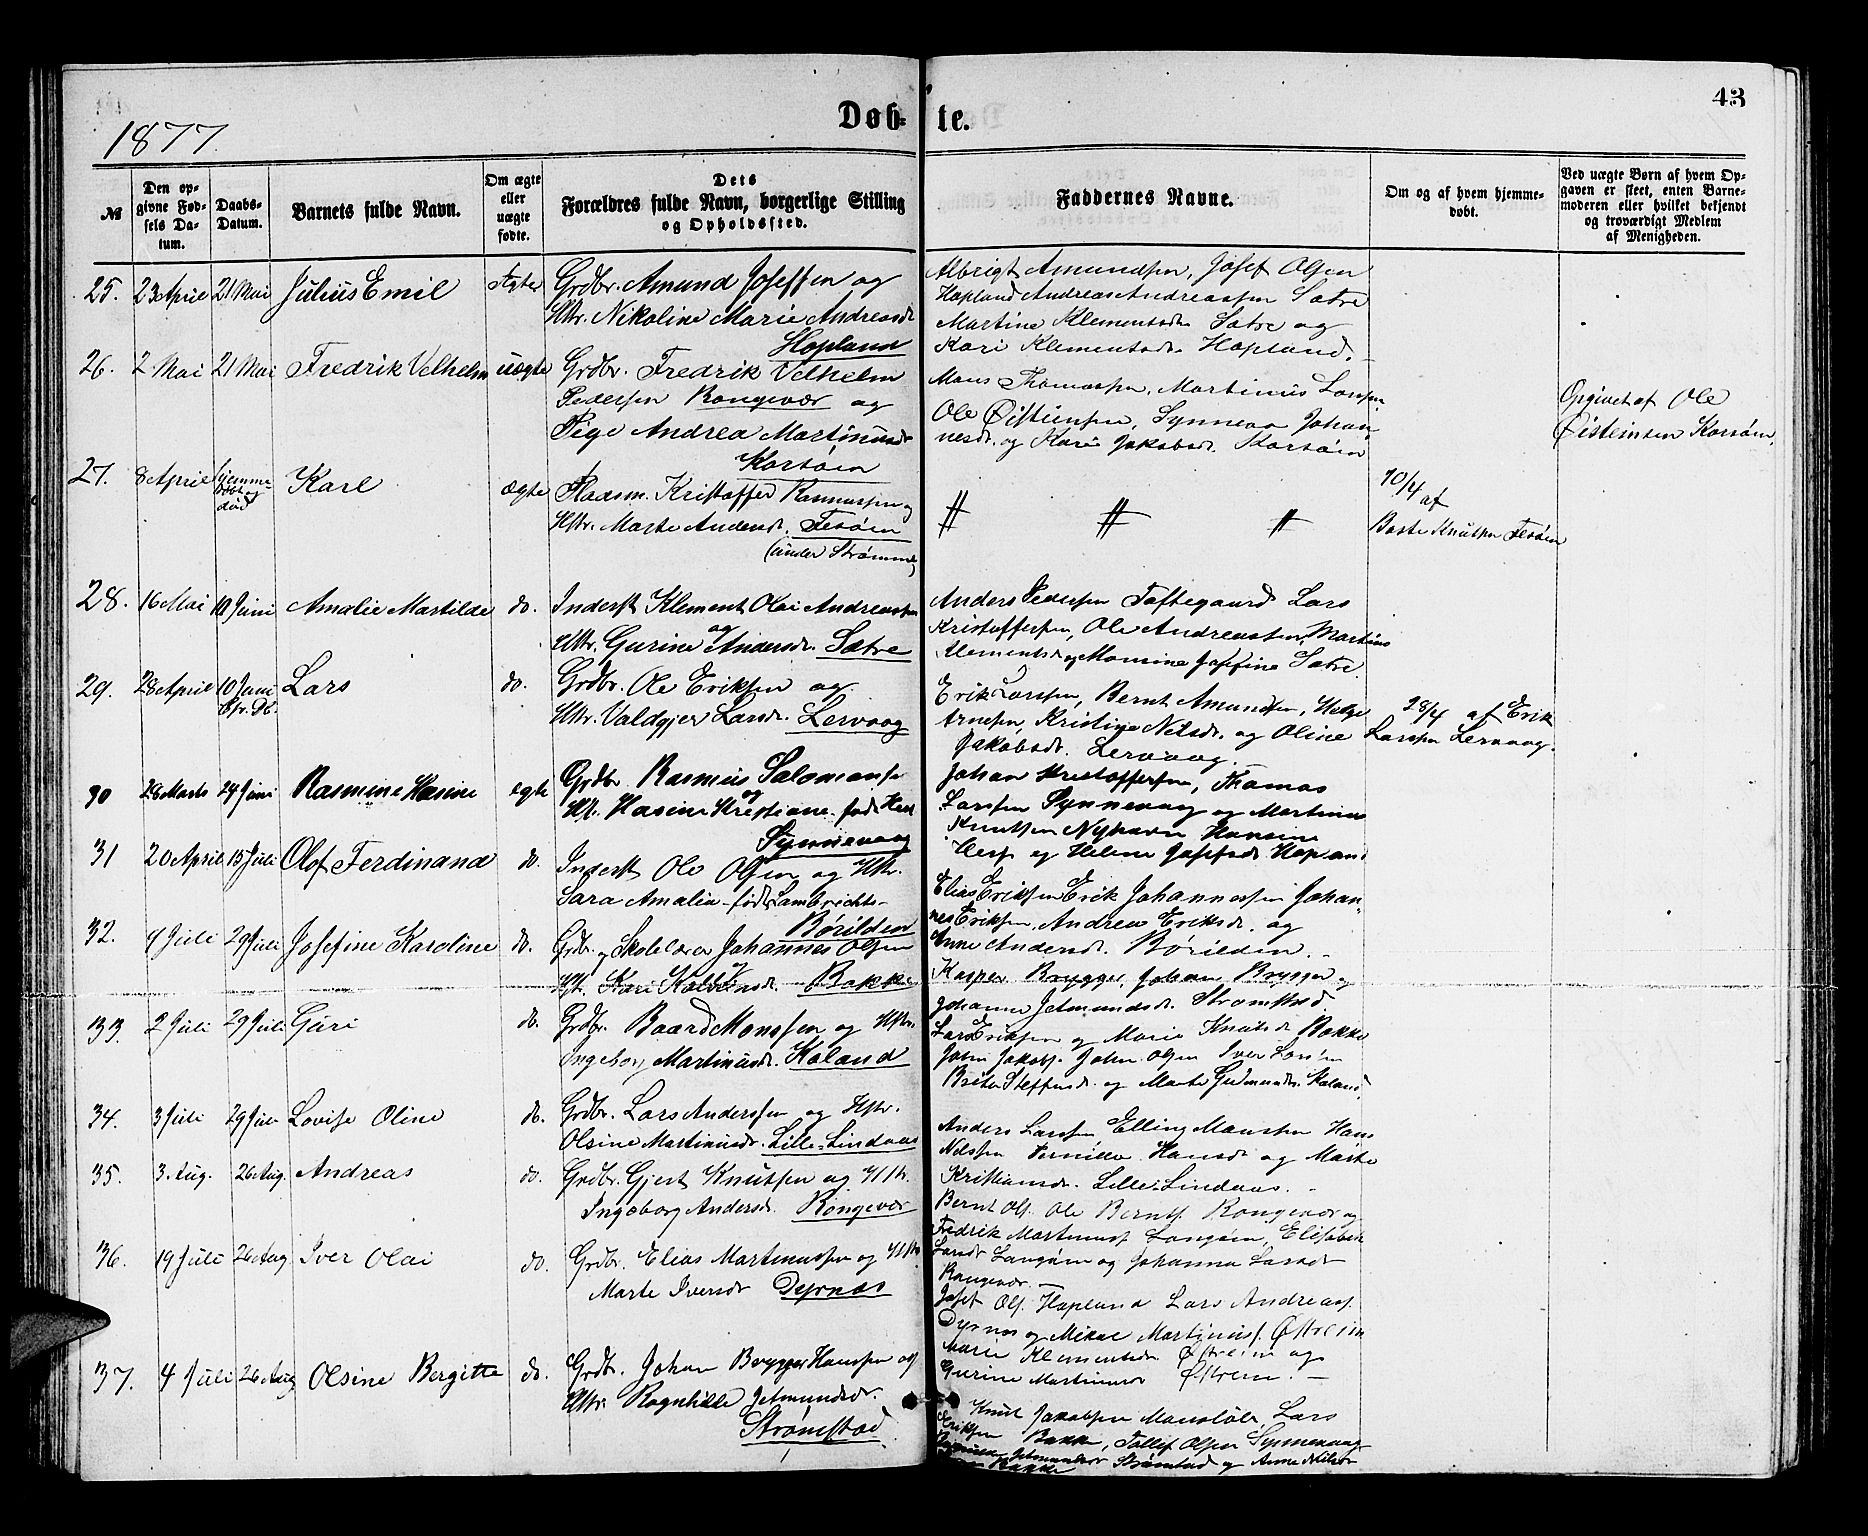 43
Døb- te.
1877.
№
Den op-
givne Fød-
sels Da-
tum.
Daabs-
Datum.
Barnets fulde Navn.
Om ægte
eller
uægte
fødte.
Dets
Forældres fulde Navn, borgerlige Stilling
og Opholdssted.
Faddernes Navne.
Om og af hvem hjemme-
døbt.
Ved uægte Børn af hvem Op-
gaven er skeet, enten Barne-
moderen eller hvilket bekjendt
og troværdigt Medlem
af Menigheden.
25. 23 April 21 Mai Julius Emil ægte Grdbr. Amund Joseffsen og
Hstr. Nikoline Marie Andreasdr
Hopland
Albrigt Amundsen, Josef Olsen
Hopland Andreas Andreassen Sætre
Martine Klementsdr Sætre og
Kari Klementsdr. Hopland.
26. 2 Mai 21 Mai Fredrik Velhelm uægte Grdbr. Fredrik Velhelm
Pedersen Rongevær og
Pige Andrea Martinusdr
Korsøen
Mons Thomassen, Martinus Larssen,
Ole Øisteinsen, Synneva Johan-
nesdr. og Kari Jakobsdr. Korsøen
Opgivet af Ole
Øisteinsen Korsøen.
27. 8 April hjemme
døbt og
død
Karl ægte Pladsm. Kristoffer Rasmussen og
Hstr. Marte Andersdr.
(under Strømme)
10/4 af
Knutsen
28. 16 Mai 10 Juni Amalie Martilde do. Inderst Klement Olai Andreassen
og
Hstr. Gurine Andersdr. Sætre
Anders Pedersen Toftegaard Lars
Kristoffersen, Ole Andreassen, Martine
Klementsdr og Monsine Josefine Sætre.
29. 28 April 10 Juni Lars do. Grdbr. Ole Eriksen og
Hstr. Valdgjer Larsdr. Lervaag
Erik Larssen, Bernt Amundsen, Helge
Arnesen, Kristine Nilsdr. og Oline
Jakobsdr. Lervaag.
28/4 af Erik
Larssen Lervaag.
30 28 Marts 24 Juni Rasmine Hasine egte Grdbr Rasmus Salomons.
og
Hst. Hasine Kristiane
Synnevaag
Johan Kristoffersen, Thomas
Larssen Synnevaag og Martinus
Knutsen Nyhavn Hansine
og Helene Josefsdr Hopland
31 20 April 15 Juli Olof Ferdinand do. Inderst Ole Olsen og Hstr.
Sara Amalia født Lambrichts-
Børilden
Elias Eriksen Erik Johannessen Johan-
nes Eriksen, Andrea Eriksdr. og
Anne Andersdr. Børilden.
32. 9 Juli 29 Juli Josefine Karoline do. Grdbr. og Skolelærer Johannes Olsen
og
Hst. Kari Bakke
Kasper Brygger, Johan Brygger og
Johanne Jetmundsdr. Strømstad
Lars Eriksen og Marie Knutsdr Bakke
33. 2 Juli 29 Juli Guri do. Grdbr. Baard Monssen og Hstr.
Ingeborg Martinusdr. Kaland
John Jakobs. John Olsen Iver Larssen
Brita Steffensdr. og Marta Gudmundsdr. Kaland.
34. 3 Juli 29 Juli Lovise Oline do. Grdbr. Lars Anderssen og Hstr.
Olsine Martinusdr. Lille-Lindaas
Anders Larssen Elling Monssen Hans
Nilssen Pernille Hansdr og Marte
Kristiansdr. Lille-Lindaas.
35. 3. Aug. 26 Aug. Andreas do. Grdbr. Gjert Knutsen og Hstr.
Ingeborg Andersdr. Rongevær
Bernt Ols. Ole Bernts. Rongevær og
Fredrik Martinuss Langøen, Elisabeth
Larsdr Langøen og Johanna Larsdr
Rongevær.
36. 19 Juli 26 Aug Iver Olai do. Grdbr. Elias Martinussen og Hstr.
Marte Iversdr Dyrnæs
Josef Ols. Hopland Lars Andreass.
Dyrnæs og Mikal Martinuss. Østreim
Marie Klementsdr. Østreim og
Gurine Martinusdr Østreim.
37. 4 Juli 26 Aug Olsine Bergitte do. Grdbr. Johan Brygger Hanssen og
Hstr Ragnhilde Jetmundsdr.
Strømstad
Knut Jakobsen Monsløb, Lars
Eriksen Bakke, Tollef Olsen Synnevaag
Jetmundsdr Strømstad og Anne Nilsdr
Bakke